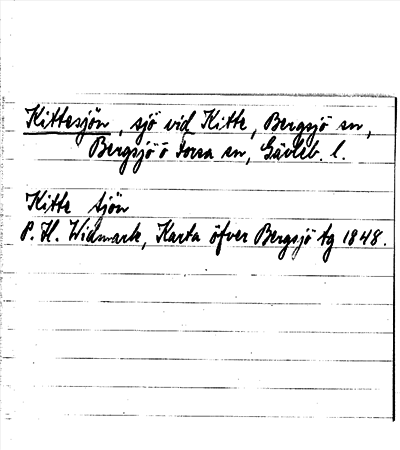 Kittesjön, sjö vid Kitte, Bergsjö sn,
Bergsjö o Forsa sn, Gävleb. l.
Kitte sjön
P. H. Widmark, Karta öfver Bergsjö tg 1848.